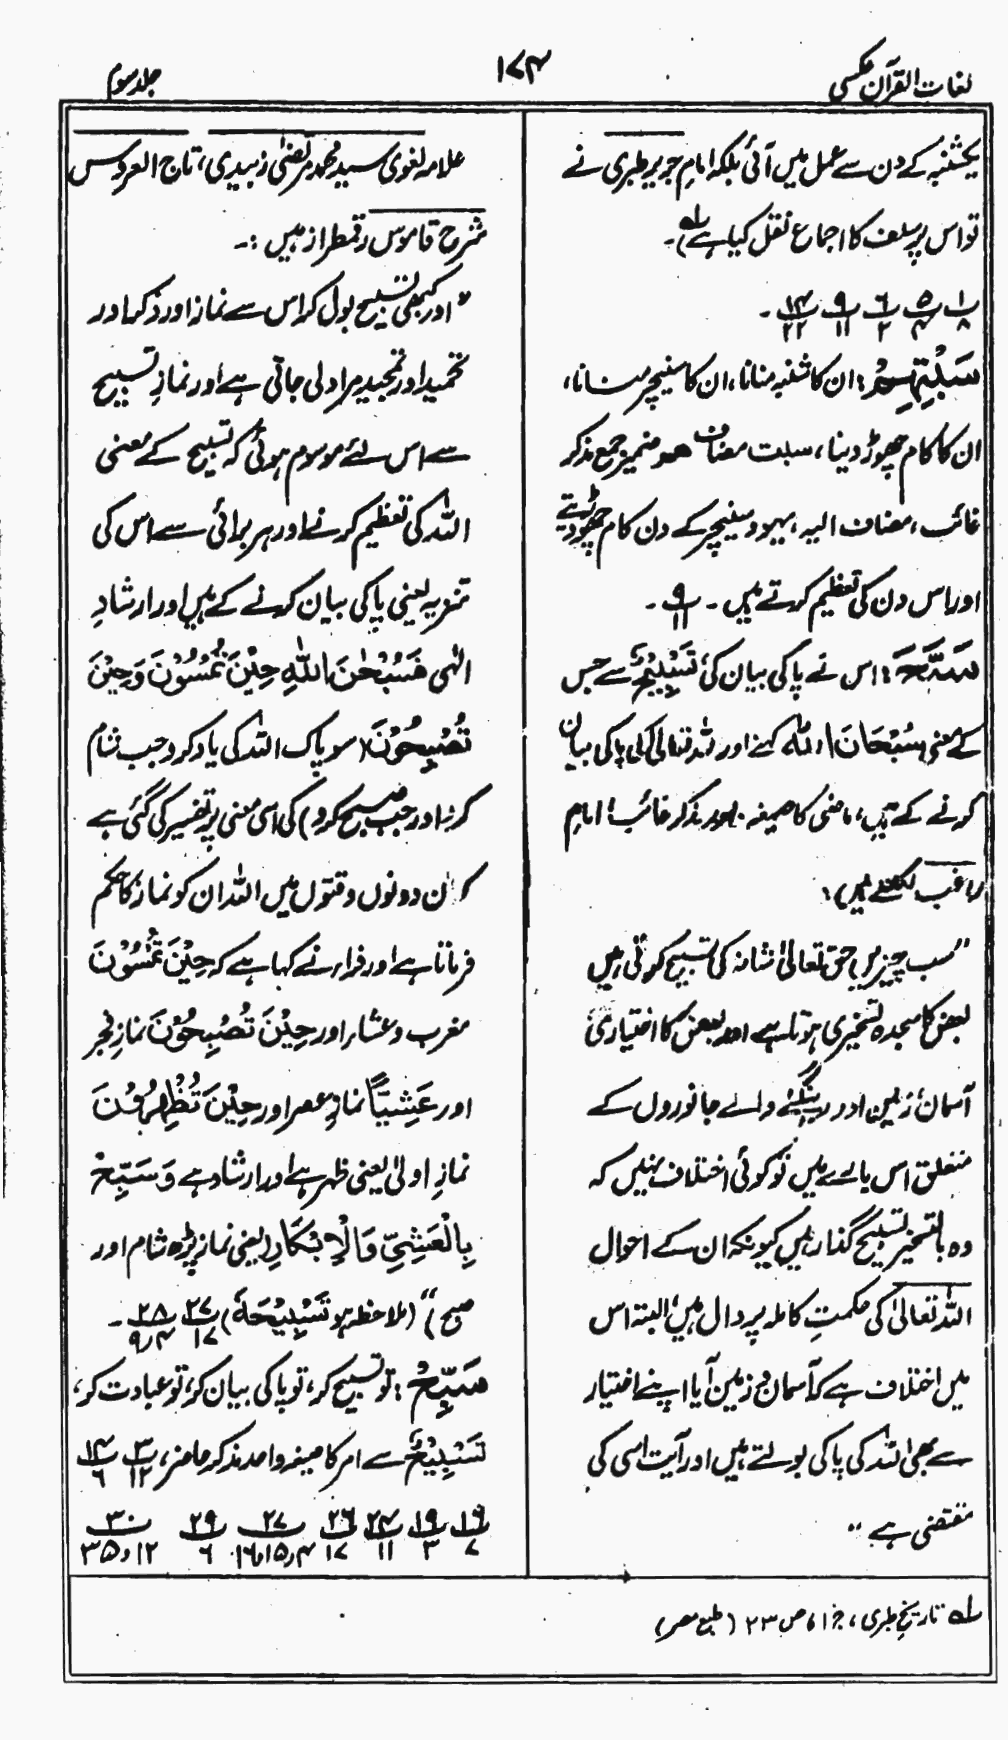 لغات القرآن عکسی
۱۷۴
جلد سوم
یکشنبہ کے دن سے عمل میں آئی بلکہ امام جریر طبری نے
تو اس پر سلف کا اجماع نقل کیا ہے) ۔
۱/۸ ۵/۴ ۶/۲ ۹/۱۱ ۱۴/۲۲ ۔
سَبْتِهِمْ: ان کا شنبہ منانا، ان کا سنیچر منانا،
ان کا کام چھوڑ دینا، سبت مضاف ھم ضمیر جمع مذکر
غائب، مضاف الیہ، یہود سنیچر کے دن کام چھوڑ دیتے
اور اس دن کی تعظیم کرتے ہیں ۔ ۹/۱۱ ۔
سَبَّحَ: اس نے پاکی بیان کی، تَسْبِيْحٌ سے جس
کے معنی سُبْحَانَ اللہ کہنے اور اللہ تعالیٰ کی پاکی بیان
کرنے کے ہیں، ماضی کا صیغہ واحد مذکر غائب، امام
راغب لکھتے ہیں):
"سب چیزیں حق تعالیٰ شانہ کی تسبیح کرتی ہیں
بعض کا سجدہ تسخیری ہوتا ہے اور بعض کا اختیاری
آسمان، زمین اور رینگنے والے جانوروں کے
متعلق اس بارے میں تو کوئی اختلاف نہیں کہ
وہ بالتسخیر تسبیح گذار ہیں کیونکہ ان کے احوال
اللہ تعالیٰ کی حکمتِ کاملہ پر دال ہیں، البتہ اس
میں اختلاف ہے کہ آسمان و زمین آیا اپنے اختیار
سے بھی اللہ کی پاکی بولتے ہیں اور آیت اسی کی
مقتضی ہے"
علامہ لغوی سید محمد مرتضیٰ زبیدی، تاج العروس
شرح قاموس رقمطراز ہیں :۔
"اور کبھی تسبیح بول کر اس سے نماز اور ذکر اور
تحمید اور تمجید مراد لی جاتی ہے اور نماز تسبیح
سے اس لئے موسوم ہوئی کہ تسبیح کے معنی
اللہ کی تعظیم کرنے اور ہر برائی سے اس کی
تنزیہ یعنی پاکی بیان کرنے کے ہیں اور ارشادِ
الٰہی فَسُبْحٰنَ اللّٰهِ حِيْنَ تُمْسُوْنَ وَحِيْنَ
تُصْبِحُوْنَ (سو پاک اللہ کی یاد کرو جب شام
کرو اور جب صبح کرو) کی اسی معنی پر تفسیر کی گئی ہے
کہ ان دونوں وقتوں میں اللہ ان کو نماز کا حکم
فرماتا ہے اور فراء نے کہا ہے کہ حِيْنَ تُمْسُوْنَ
مغرب و عشاء اور حِيْنَ تُصْبِحُوْنَ نماز فجر
اور عَشِيًّا نمازِ عصر اور حِيْنَ تُظْهِرُوْنَ
نمازِ اولیٰ یعنی ظہر ہے اور ارشاد ہے وَسَبِّحْ
بِالْعَشِيِّ وَالْاِبْكَارِ یعنی نماز پڑھ شام اور
صبح)" (ملاحظہ ہو تَسْبِيْحَهٗ) ۲۷/۱۷ ۲۸/۹،۴ ۔
سَبِّحْ: تو تسبیح کر، تو پاکی بیان کر، تو عبادت کر،
تَسْبِيْحٌ سے امر کا صیغہ واحد مذکر حاضر، ۳/۱۲ ۱۴/۶
۱۶/۷ ۱۹/۳ ۲۴/۱۱ ۲۶/۱۷ ۲۷/۴،۱۵،۱۶ ۲۹/۶ ۳۰/۱۲،۳۵
لہ تاریخ طبری، ج ۱، ص ۲۳ (طبع مصر)